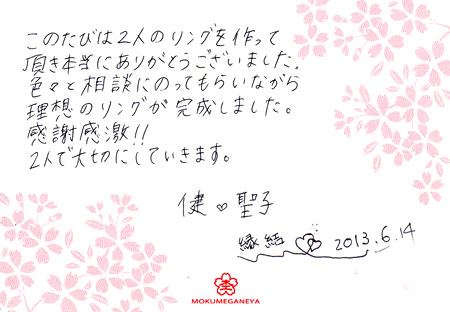 このたびは2人のリングを作って
頂き本当にありがとうございました。
色々と相談にのってもらいながら
理想のリングが完成しました。
感謝感激!!
2人で大切にしていきます。
健♡聖子
縁結 2013.6.14
MOKUMEGANEYA